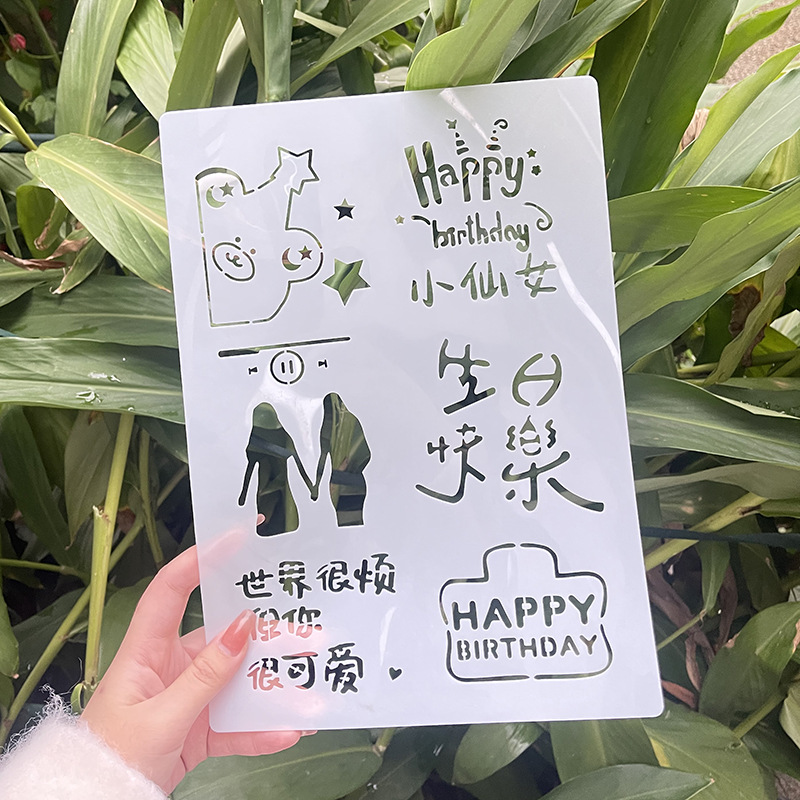 Happy
birthday
小仙女
生日
快樂
世界很烦
但你
很可爱
HAPPY
BIRTHDAY